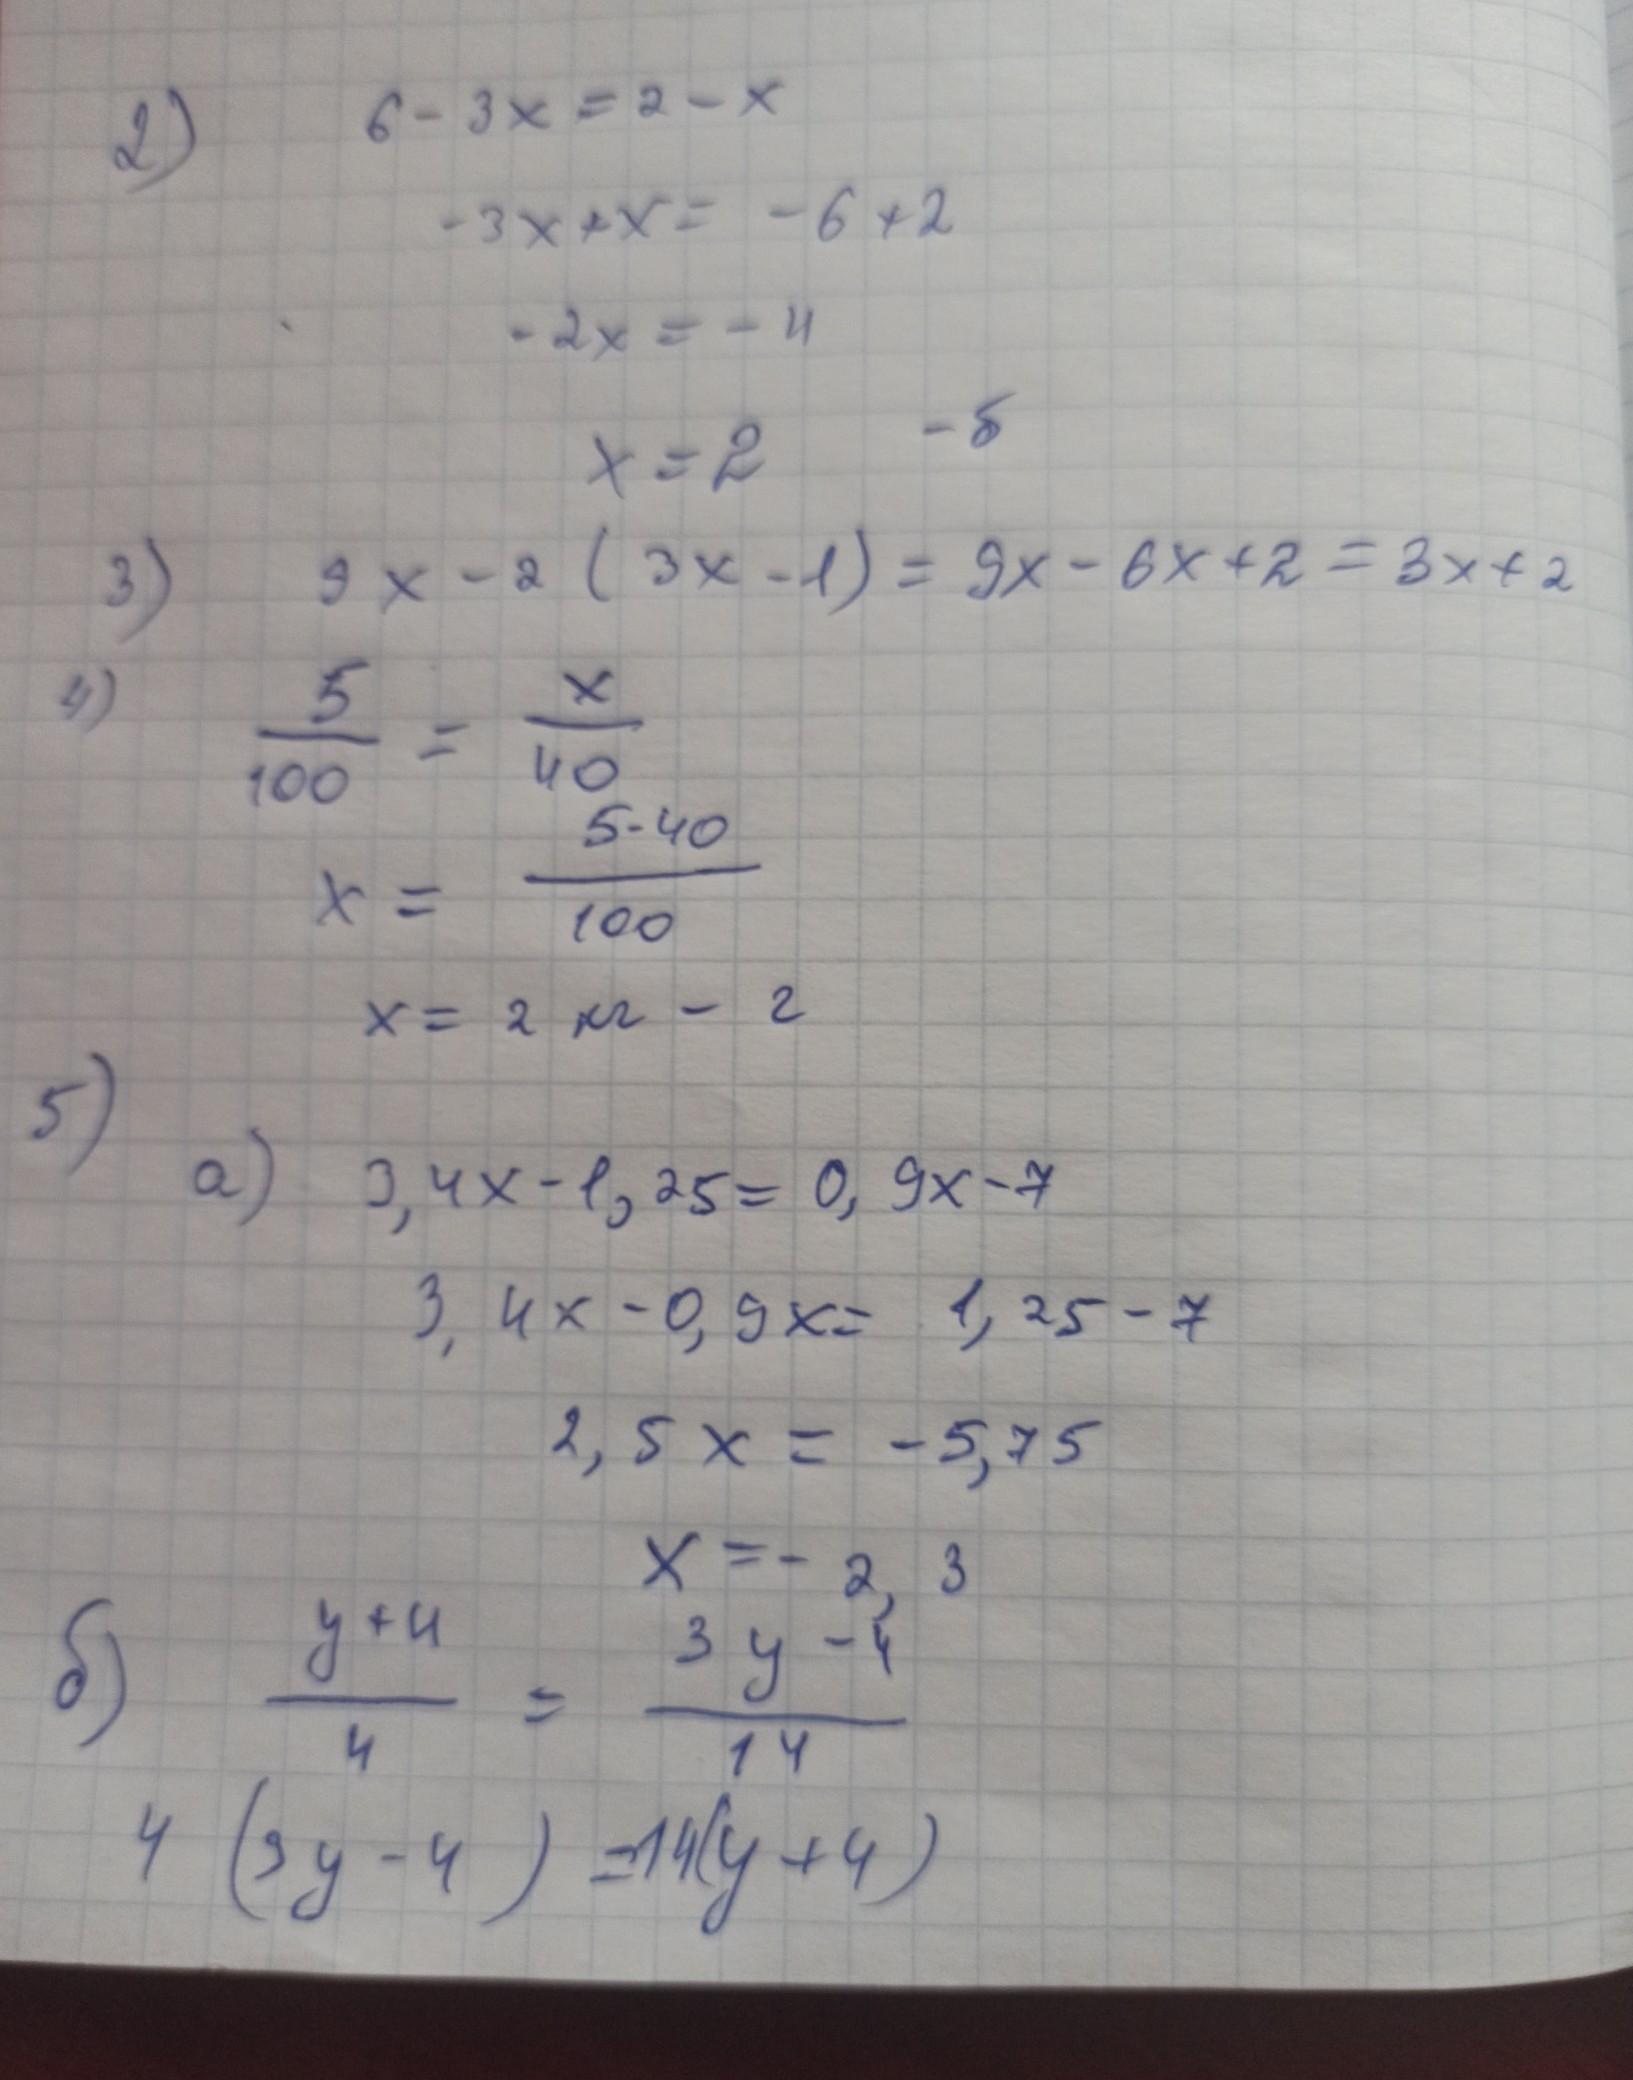 2) 6 - 3x = 2 - x
-3x + x = -6 + 2
-2x = -4
x = 2 - б
3) 9x - 2 (3x - 1) = 9x - 6x + 2 = 3x + 2
4) 5/100 = x/40
x = 5·40/100
x = 2 кг - г
5)
а) 3,4x - 1,25 = 0,9x - 7
3,4x - 0,9x = 1,25 - 7
2,5x = -5,75
x = -2,3
б) y+4/4 = 3y-4/14
4 (3y - 4) = 14(y + 4)